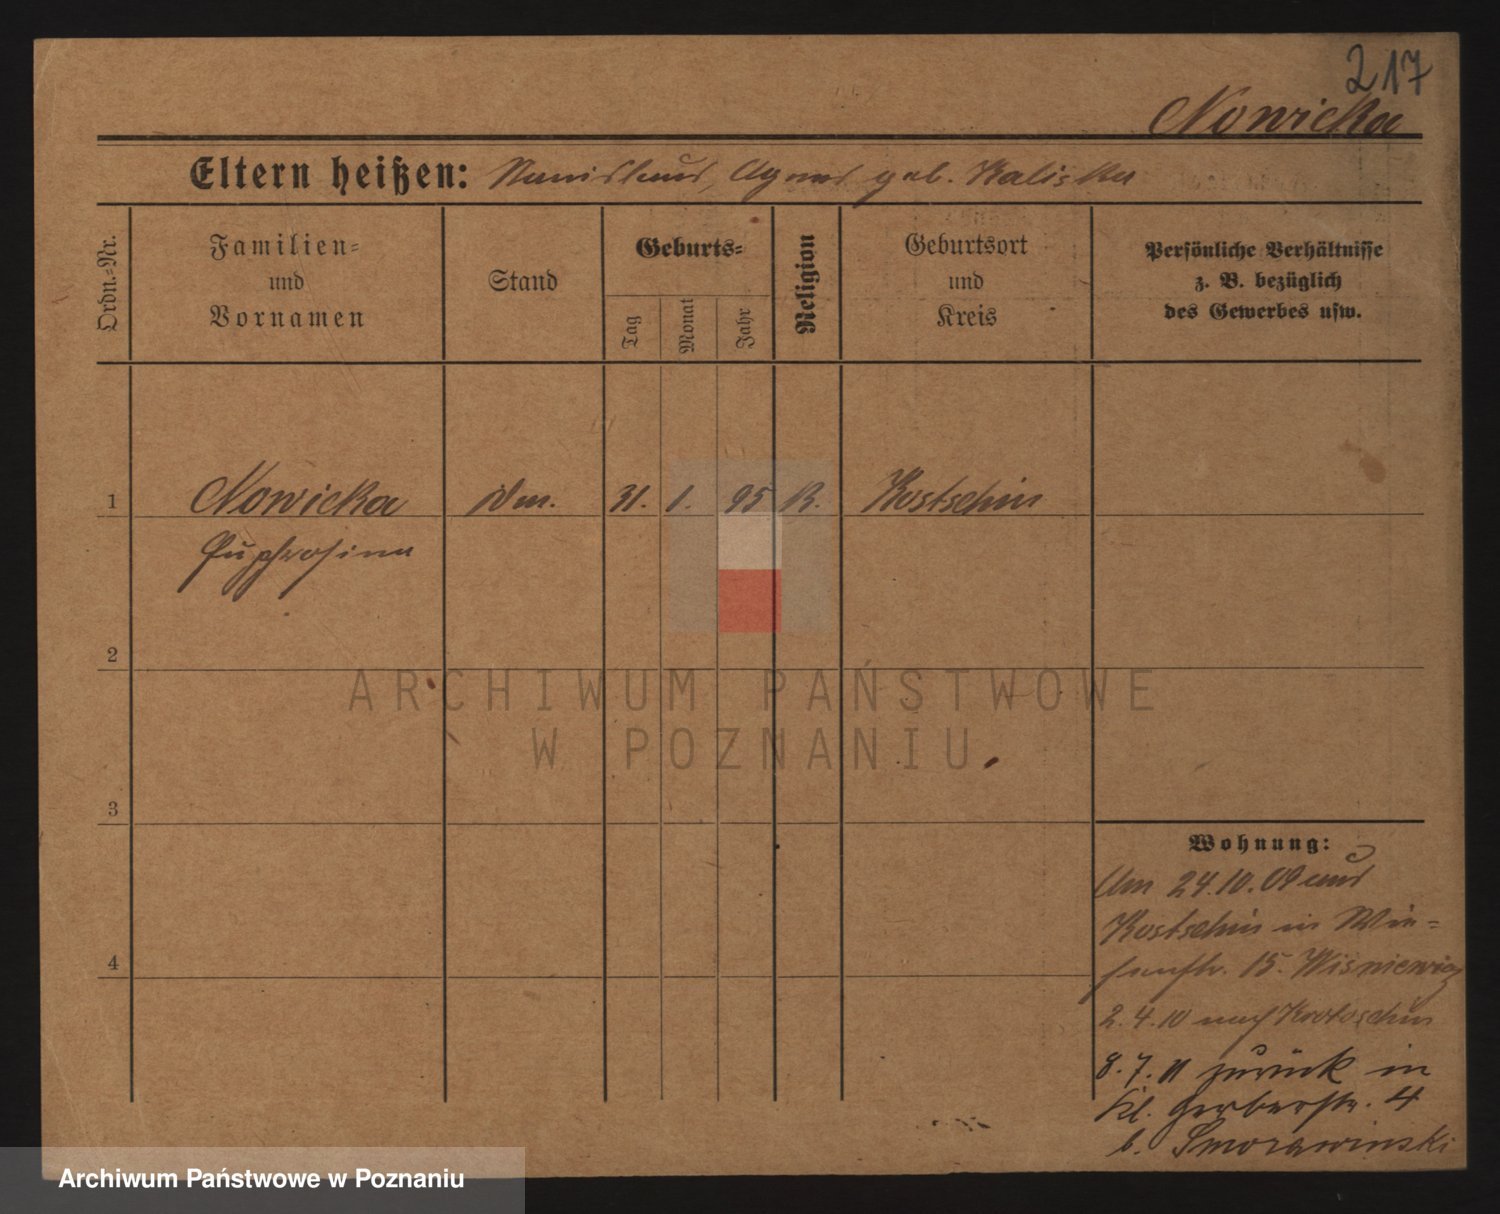 217
Nowicka
Eltern heißen: Stanislaus, Agnes geb. Kaliska
Ordn.-Nr.
Familien-
und
Vornamen
Stand
Geburts-
Tag
Monat
Jahr
Religion
Geburtsort
und
Kreis
Persönliche Verhältnisse
z. B. bezüglich
des Gewerbes usw.
1
Nowicka
31. 1. 95
K.
Kostschin
Euphrosina
2
3
4
ARCHIWUM PAŃSTWOWE
W POZNANIU
Wohnung:
Am 24.10.09 aus
Kostschin in
15. Wisniewicz
2.4.10 nach Krotoschin
8.7.11 zurück in
Kl. Gerberstr. 4
b. Smorawinski
Archiwum Państwowe w Poznaniu